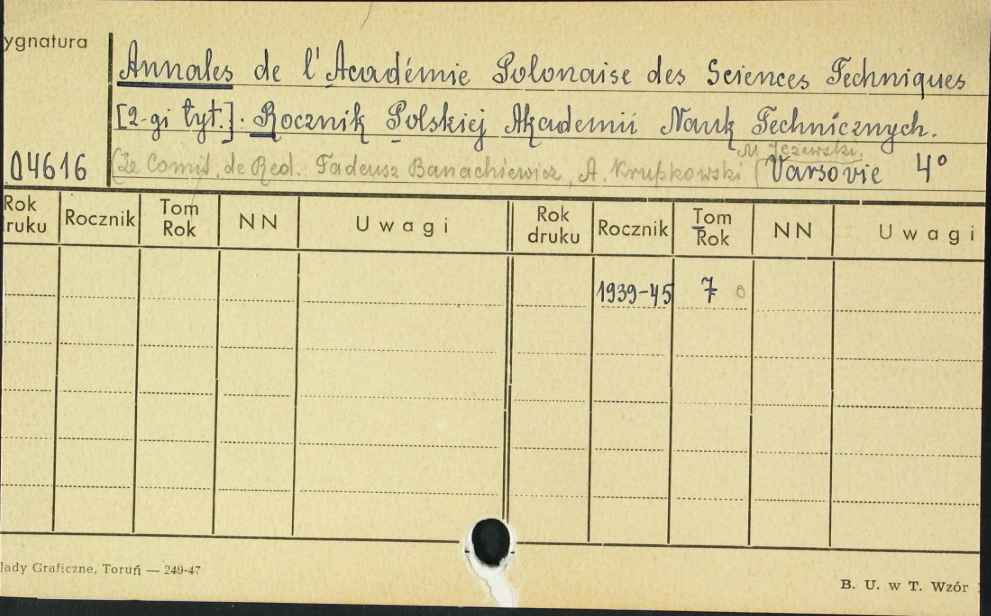 ygnatura
Annales de l'Académie Polonaise des Sciences Techniques
[2-gi tyt.]. Rocznik Polskiej Akademii Nauk Technicznych.
M. Jeżewski,
04616 (Le Comit. de Red. Tadeusz Banachiewicz, A. Krupkowski Varsovie 4°
Rok druku Rocznik Tom Rok NN Uwagi Rok druku Rocznik Tom Rok NN Uwagi
1939-45 7 o
łady Graficzne, Toruń — 249-47
B. U. w T. Wzór